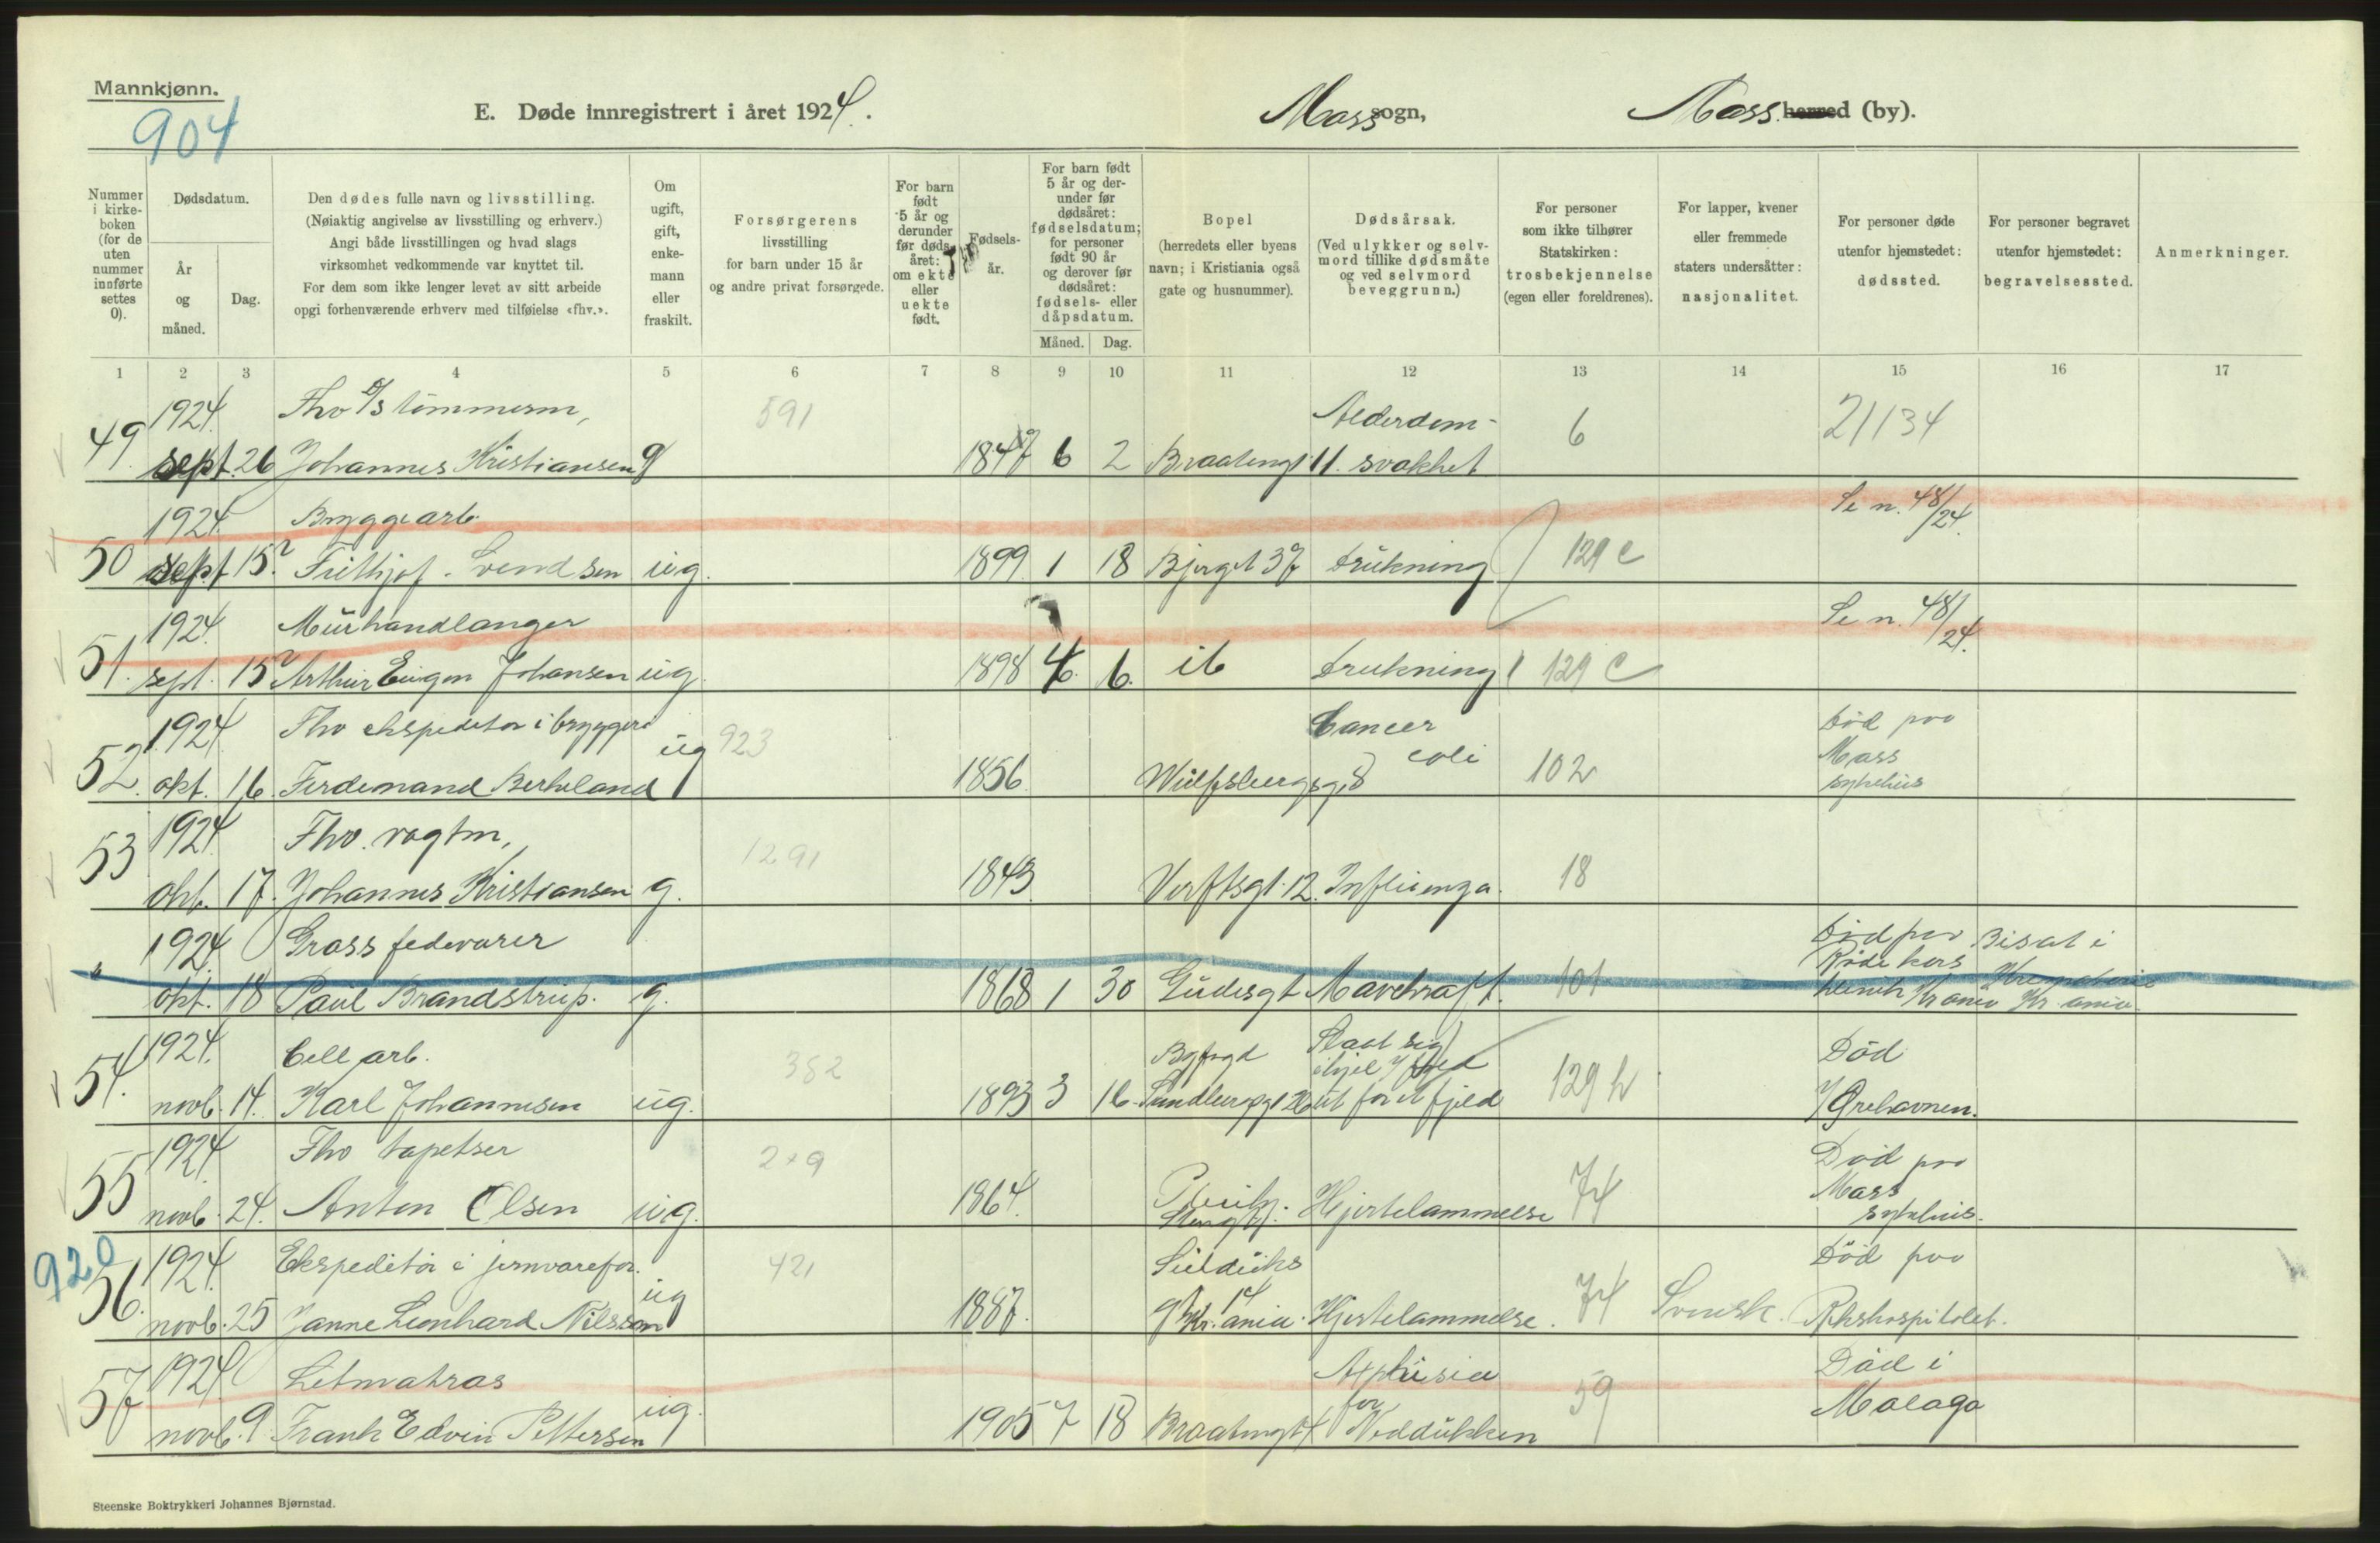 Mannkjønn.
904
E. Døde innregistrert i året 1924.
Moss sogn,
Moss herred (by).
Nummer i kirke-boken (for de uten nummer innførte settes 0).
Dødsdatum.
År og måned.
Dag.
Den dødes fulle navn og livsstilling.
(Nøiaktig angivelse av livsstilling og erhverv.)
Angi både livsstillingen og hvad slags
virksomhet vedkommende var knyttet til.
For dem som ikke lenger levet av sitt arbeide
opgi forhenværende erhverv med tilføielse «fhv.».
Om ugift, gift, enke-mann eller fraskilt.
Forsørgerens
livsstilling
for barn under 15 år
og andre privat forsørgede.
For barn født 5 år og derunder før døds-året: om ekte eller uekte født.
Fødsels-år.
For barn født 5 år og der-under før dødsåret: fødselsdatum; for personer født 90 år og derover før dødsåret: fødsels- eller dåpsdatum.
Måned.
Dag.
Bopel
(herredets eller byens
navn; i Kristiania også
gate og husnummer).
Dødsårsak.
(Ved ulykker og selv-
mord tillike dødsmåte
og ved selvmord
beveggrunn.)
For personer
som ikke tilhører
Statskirken:
trosbekjennelse
(egen eller foreldrenes).
For lapper, kvener
eller fremmede
staters undersåtter:
nasjonalitet.
For personer døde
utenfor hjemstedet:
dødssted.
For personer begravet
utenfor hjemstedet:
begravelsessted.
Anmerkninger.
1 2 3 4 5 6 7 8 9 10 11 12 13 14 15 16 17
1924. Fhv tømmerm, 591 Alderdom- 6 21134
49. sept. 26 Johannes Kristiansen g 6 2 Braatengt 11. svakhet
1924. Bryggearb. Se n. 48/24.
50 sept 15? Frithjof Svendsen ug. 1899 1 18 Bjerget 37 Drukning 129 c
1924. Murhandlanger Se n. 48/24.
51. sept. 15? Arthur Eugen Johansen ug. 1898 4 6. ib Drukning 129 c
1924 Fhv ekspeditør i bryggeri ug 923 Cancer coli 102 Død paa Moss sykehus
52. okt. 16. Ferdinand 1856. Wulfsbergsg. 8
1924 Fhv. vagtm, 1291 18
53 okt. 17. Johannes Kristiansen g. 1843. Verftsgt. 12. Influenza.
1924. Gross. fedevarer Død paa Bisat i
" okt. 18 Paul Brandstrup. g. 1868 1 30 Gudesgt Mavekræft. 101 Røde kors klinik Kr.ania Krematoriet Kr.ania.
1924. Cell arb. 382 Slaat sig ihjel 129 h Død
54. novb. 14. Karl Johannesen ug. 1893 3 16. ut for et fjeld
1924. Fhv tapetser 2+9 Død paa
55 novb. 24. Anton Olsen ug. 1864. Hjertelammelse 74 Moss sykehus.
920
1924. Ekspeditør i jernvarefor. ug 421 Død paa
56. novb. 25 Janne Leonhard Nilsson 1887. gt. 14 Kr.ania. Hjertelammelse. 74 Svensk. Rikshospitalet.
1924 Letmatros ug. for 59 Død i
57 novb. 9. Frank Edvin Pettersen 1905 7 18 Braatengt Malaga
Steenske Boktrykkeri Johannes Bjørnstad.